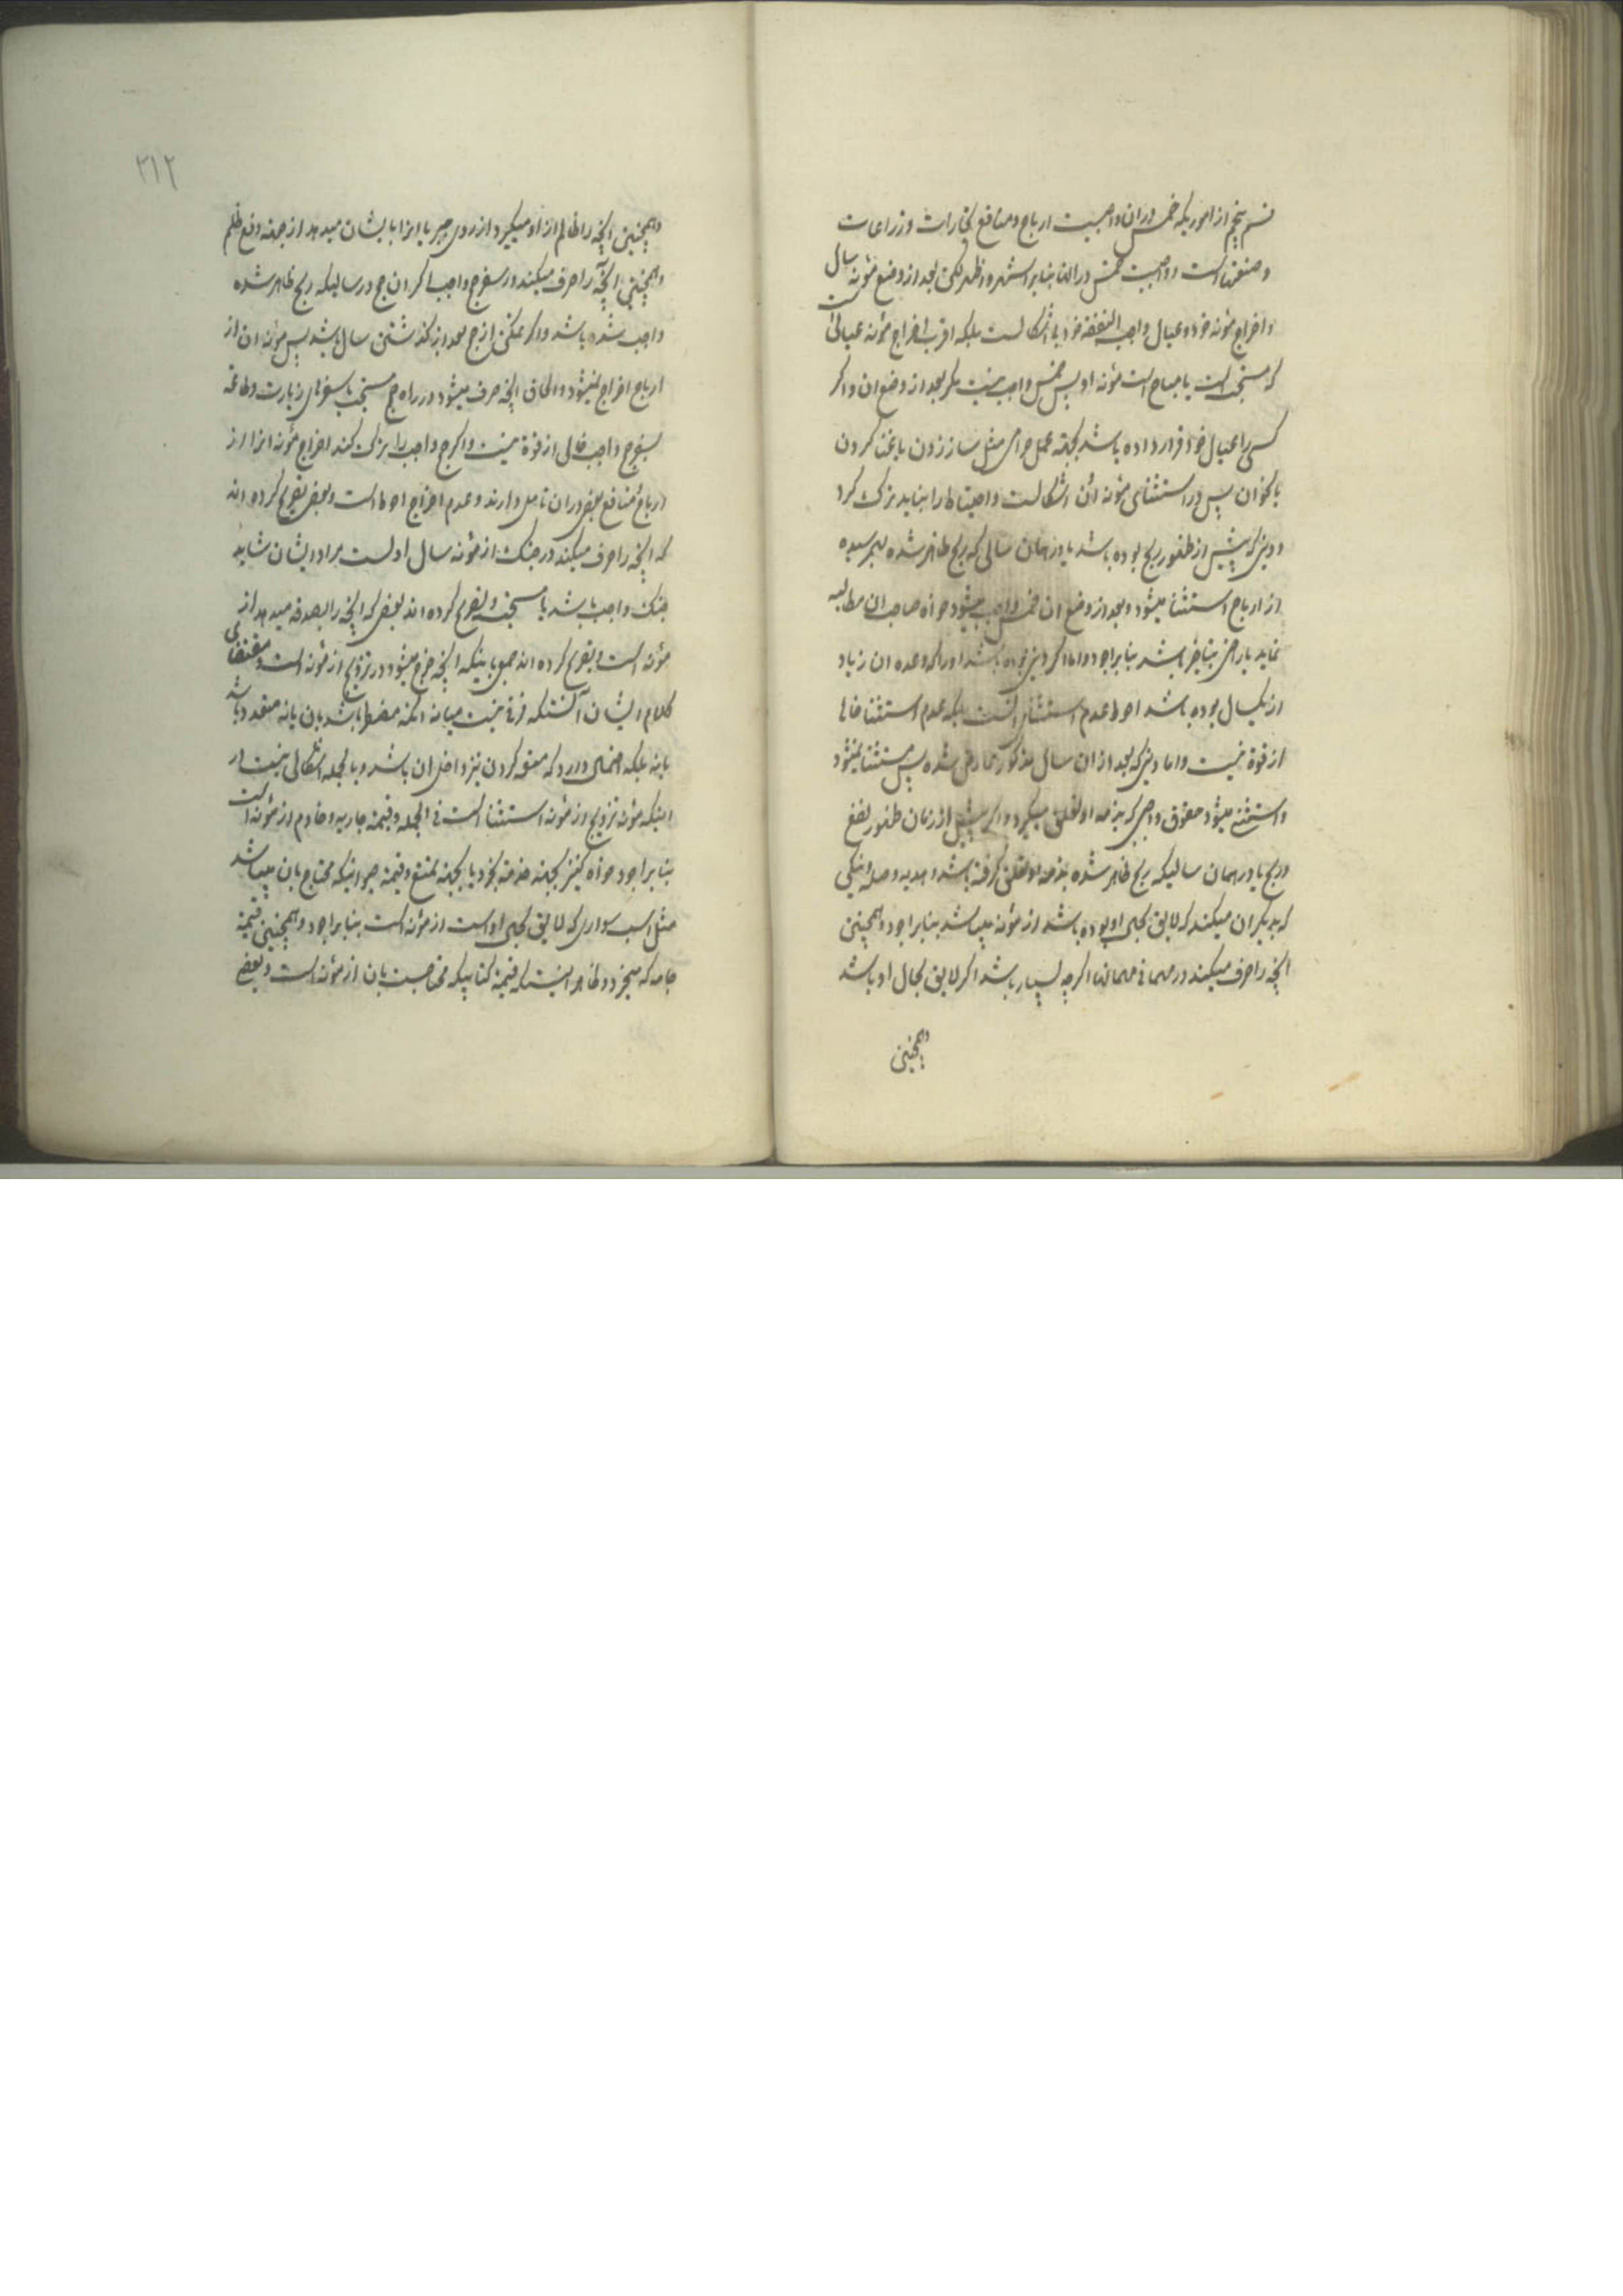 قسم پنجم از اموریکه خمس دران واجبست ارباح و منافع تجارات و زراعات
و صنعتها است و واجبست خمس در اینها بنابر اشهر و اظهر لکن بعد از وضع مؤنه سال
و اخراج مؤنه خود و عیال واجب النفقه خود بی اشکالست بلکه اقرب اخراج مؤنه عیالی است
که مستحب است یا مباح است مؤنه او پس خمس واجب نیست مگر بعد از وضع ان و اگر
کسی را عیال خود قرار داده باشد بجهة عمل حرامی مثل ساز زدن یا غنا کردن
یا نحو ان پس در استثنای مؤنه ان اشکالست و احتیاط را نباید ترک کرد
و دینی که پیش از ظهور ربح بوده باشد یا در همان سالی که ربح ظاهر شده بهم رسیده
از ارباح استثنا میشود و بعد از وضع ان خمس واجب میشود خواه صاحب ان مطالبه
نماید یا راضی بتاخیر باشد بنابر اجود و اما اگر دینی بوده باشد او را که وعده ان زیاد
از یکسال بوده باشد احوط عدم استثنای انست بلکه عدم استثنا خالی
از قوة نیست و اما دینی که بعد از ان سال مذکور عارض شده پس مستثنا نمیشود
و استثنا میشود حقوق واجبی که بذمه او تعلق میگیرد و اگر پیش از زمان ظهور نفع
و ربح یا در همان سالیکه ربح ظاهر شده بذمه او تعلق گرفته باشد و هدیه و صله و نیکی
که بدیگران میکند که لایق بحال او بوده باشد از مؤنه میباشد بنابر اجود و همچنین
انچه را صرف میکند در مهمانی مهمانها اگرچه بسیار باشد اگر لایق بحال او باشد
وهمچنین
۲۱۲
و همچنین انچه را ظالم از او میگیرد از روی جبر یا انرا بایشان میدهد از جهة دفع ظلم
و همچنین انچه را صرف میکند در سفر حج واجب اگر ان حج در سالیکه ربح ظاهر شده
واجب شده باشد و اگر ممکن از حج بعد از گذشتن سال باشد پس مؤنه ان از
ارباح اخراج نمیشود و الحاق انچه صرف میشود در راه حج مستحب یا سفرهای زیارت و طاعة
بسفر حج واجب خالی از قوة نیست و اگر حج واجب را ترک کند اخراج مؤنه انرا از
ارباح و منافع بعضی دران تامل دارند و عدم اخراج احوط است و بعضی تصریح کرده اند
که انچه را صرف میکند در جنک از مؤنه سال اوست مراد ایشان شاید
جنک واجب باشد یا مستحب و تصریح کرده اند بعضی که انچه را بصدقه میدهد از
مؤنه است و تصریح کرده اند جمعی باینکه انچه خرج میشود در تزویج از مؤنه است و مقتضای
کلام ایشان آنستکه فرقی نیست میانه انکه مضطر باشد بان یا نه متعدد باشد
یا نه بلکه احتمال دارد که متعه کردن نیز داخل ان باشد و بالجمله اشکالی نیست در
اینکه مؤنه تزویج از مؤنه استثنا است فی الجمله و قیمة جاریه و خادم از مؤنه است
بنابر اجود خواه کنیز بجهة خدمة بخرد یا بجهة تمتع و قیمة حیوانیکه محتاج بان میباشد
مثل اسب سواری که لایق بحال اوست از مؤنه است بنابر اجود و همچنین قیمة
جامه که میخرد و ظاهر اینستکه قیمة کتابیکه محتاجست بان از مؤنه است و بعضی